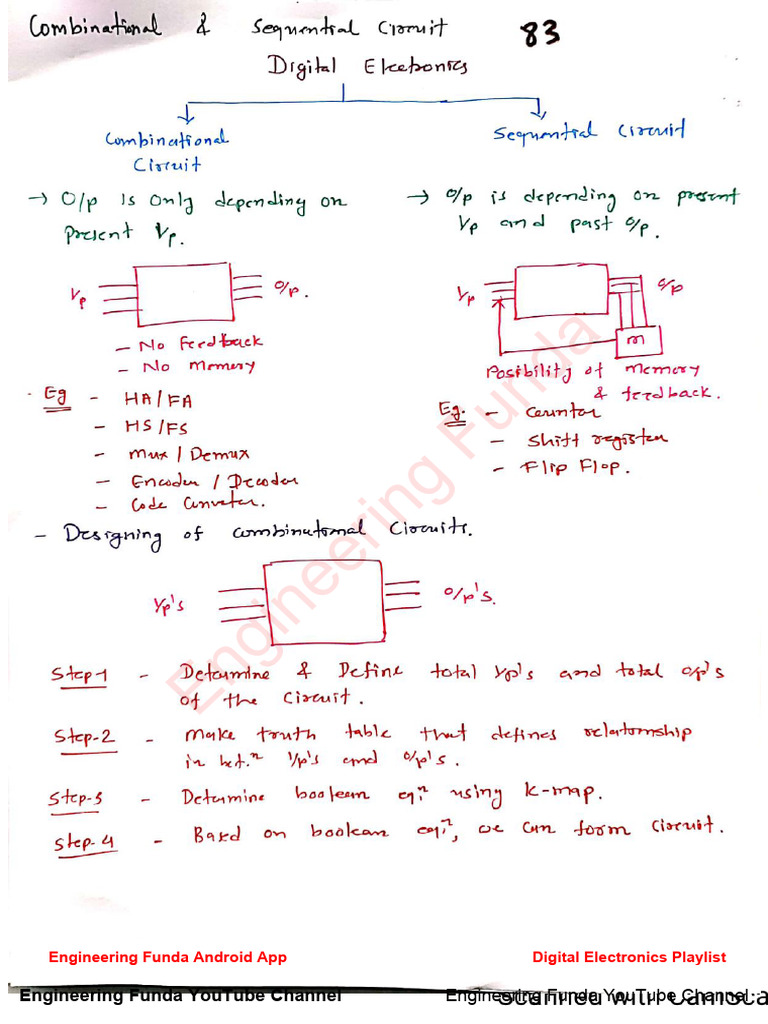 Combinational & Sequential Circuit 83
Digital Electronics
Combinational
Circuit
→ O/p is only depending on
present I/p.
I/p
O/p.
- No Feedback
- No Memory
Eg - HA/FA
- HS/FS
- Mux / Demux
- Encoder / Decoder
- Code Conveter.
Sequential Circuit
→ O/p is depending on present
I/p and past O/p.
I/p
O/p
m
Posibility of memory
& feedback.
Eg. - Counter
- Shift register
- Flip Flop.
- Designing of combinational Circuits.
I/p's
O/p's.
Step-1 - Determine & Define total I/p's and total O/p's
of the Circuit.
Step-2 - Make truth table that defines relationship
in bet.n I/p's and O/p's.
Step-3 - Determine boolean eqn. using K-map.
Step-4 - Based on boolean eqn, we can form Circuit.
Engineering Funda
Engineering Funda Android App Digital Electronics Playlist
Engineering Funda YouTube Channel Engineering Funda YouTube Channel